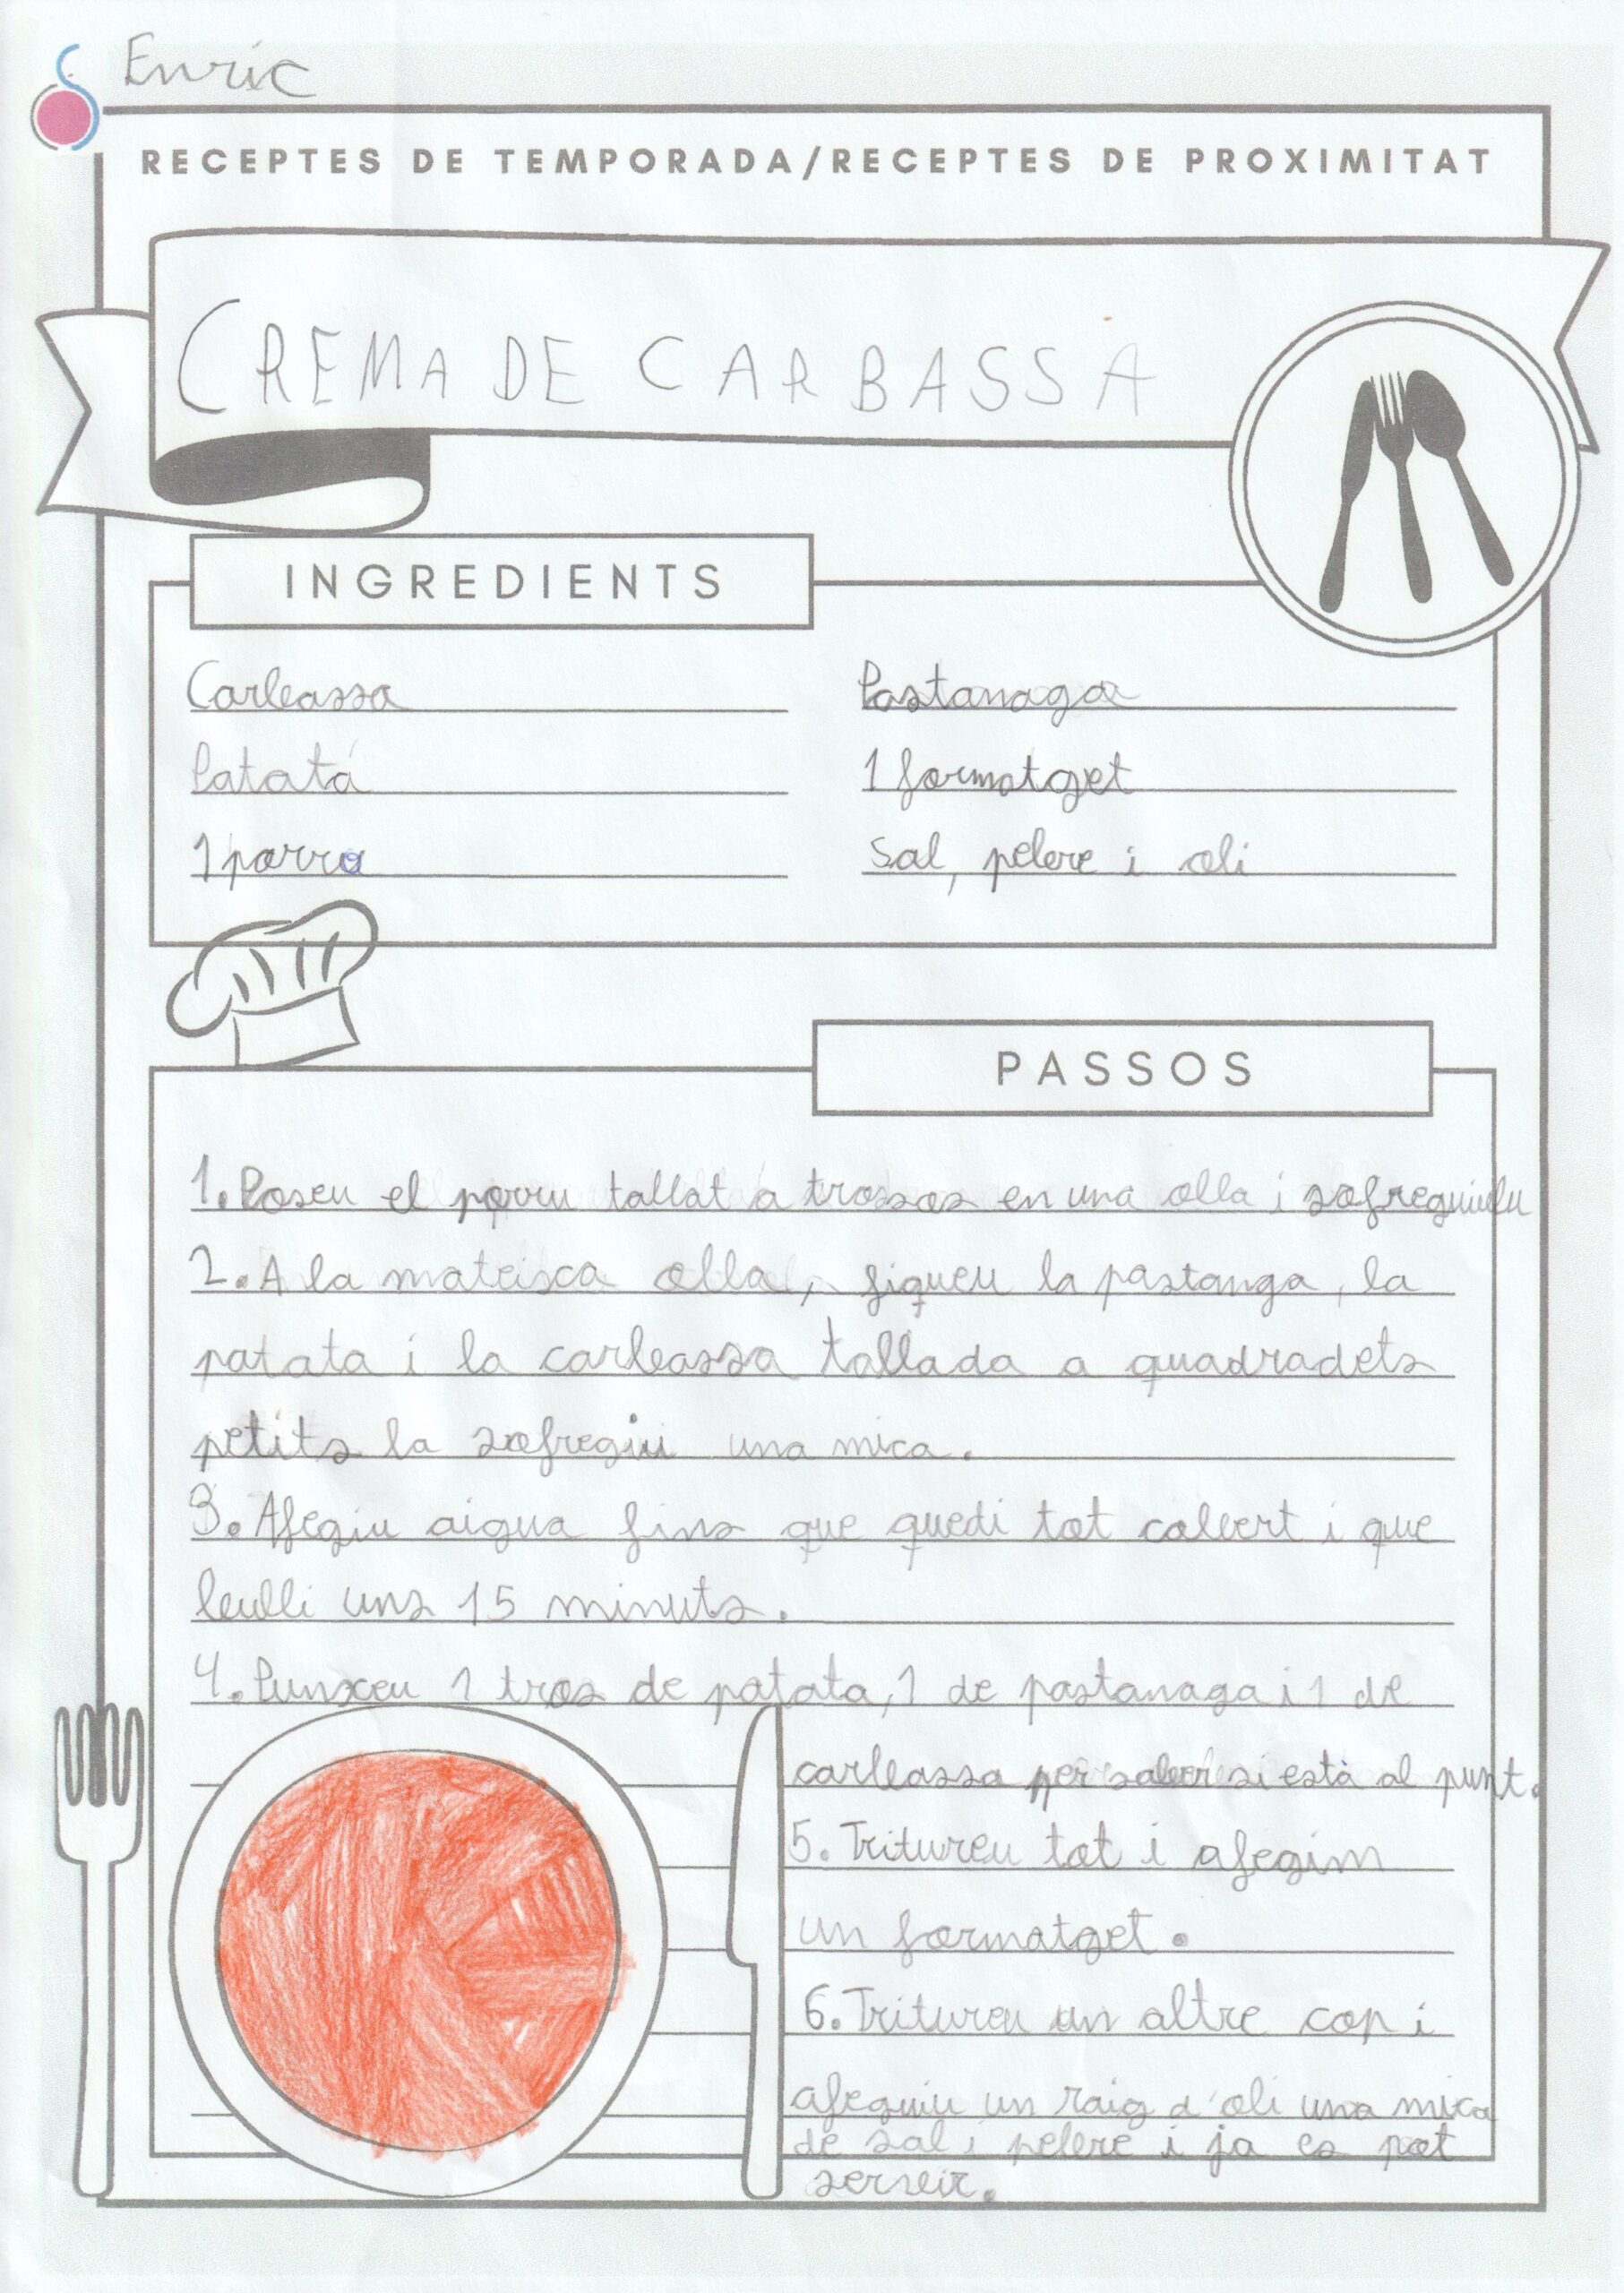 Enric
RECEPTES DE TEMPORADA/RECEPTES DE PROXIMITAT
CREMA DE CARBASSA
INGREDIENTS
Carbassa
Patata
1 porro
Pastanaga
1 formatget
Sal, pebre i oli
PASSOS
1. Poseu el porru tallat a trossos en una olla i sofreguiulu
2. A la mateixca olla, fiqueu la pastanga, la
patata i la carbassa tallada a quadradets
petits la sofregiu una mica.
3. Afegiu aigua fins que quedi tot cobert i que
bulli uns 15 minuts.
4. Punxeu 1 tros de patata, 1 de pastanaga i 1 de
carbassa per saber si està al punt.
5. Tritureu tot i afegim
un formatget.
6. Tritureu un altre cop i
afeguiu un raig d'oli una mica
de sal i pebre i ja es pot
servir.